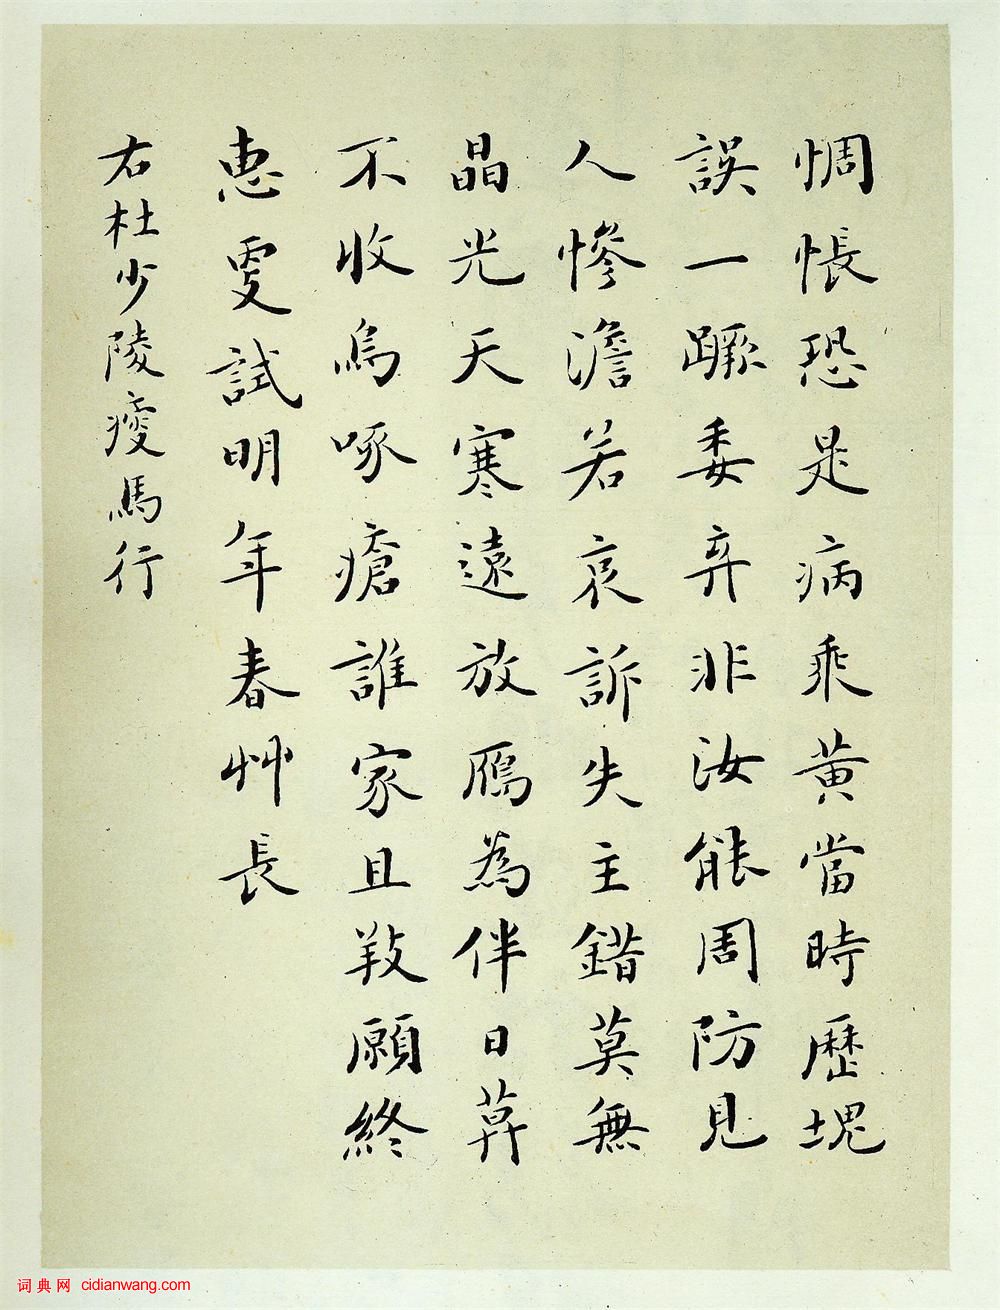 惆悵恐是病乘黃當時歷塊
誤一蹶委棄非汝能周防見
人慘澹若哀訴失主錯莫無
晶光天寒遠放鴈為伴日暮
不收烏啄瘡誰家且養願終
惠更試明年春艸長
右杜少陵瘦馬行
词典网 cidianwang.com